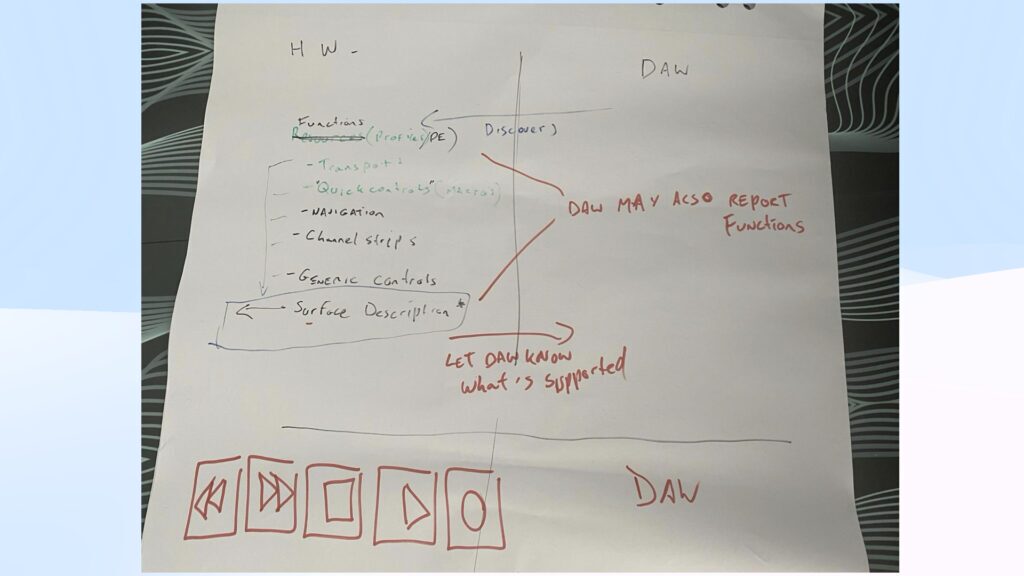 HW -
DAW
Functions
Resources (Profiles/PE)
Discover)
- Transport
- "Quick controls" (MACROS)
- NAVIGATION
- Channel strips
- GENERIC controls
- Surface Description*
DAW MAY ALSO REPORT
Functions
LET DAW KNOW
what's supported
DAW